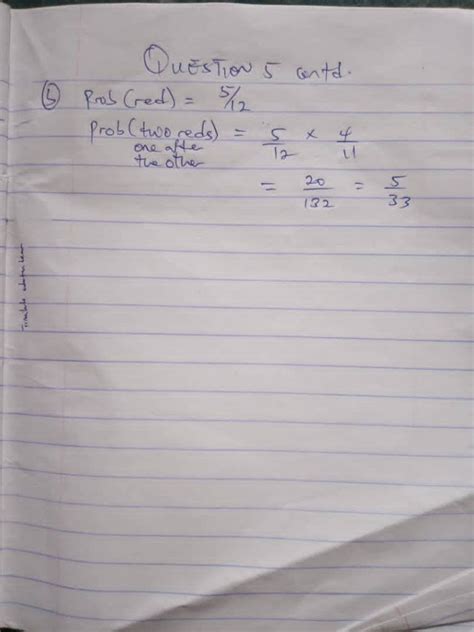 QUESTION 5 contd.
(b) Prob (red) = 5/12
Prob (two reds) = 5/12 × 4/11
one after
the other
= 20/132 = 5/33